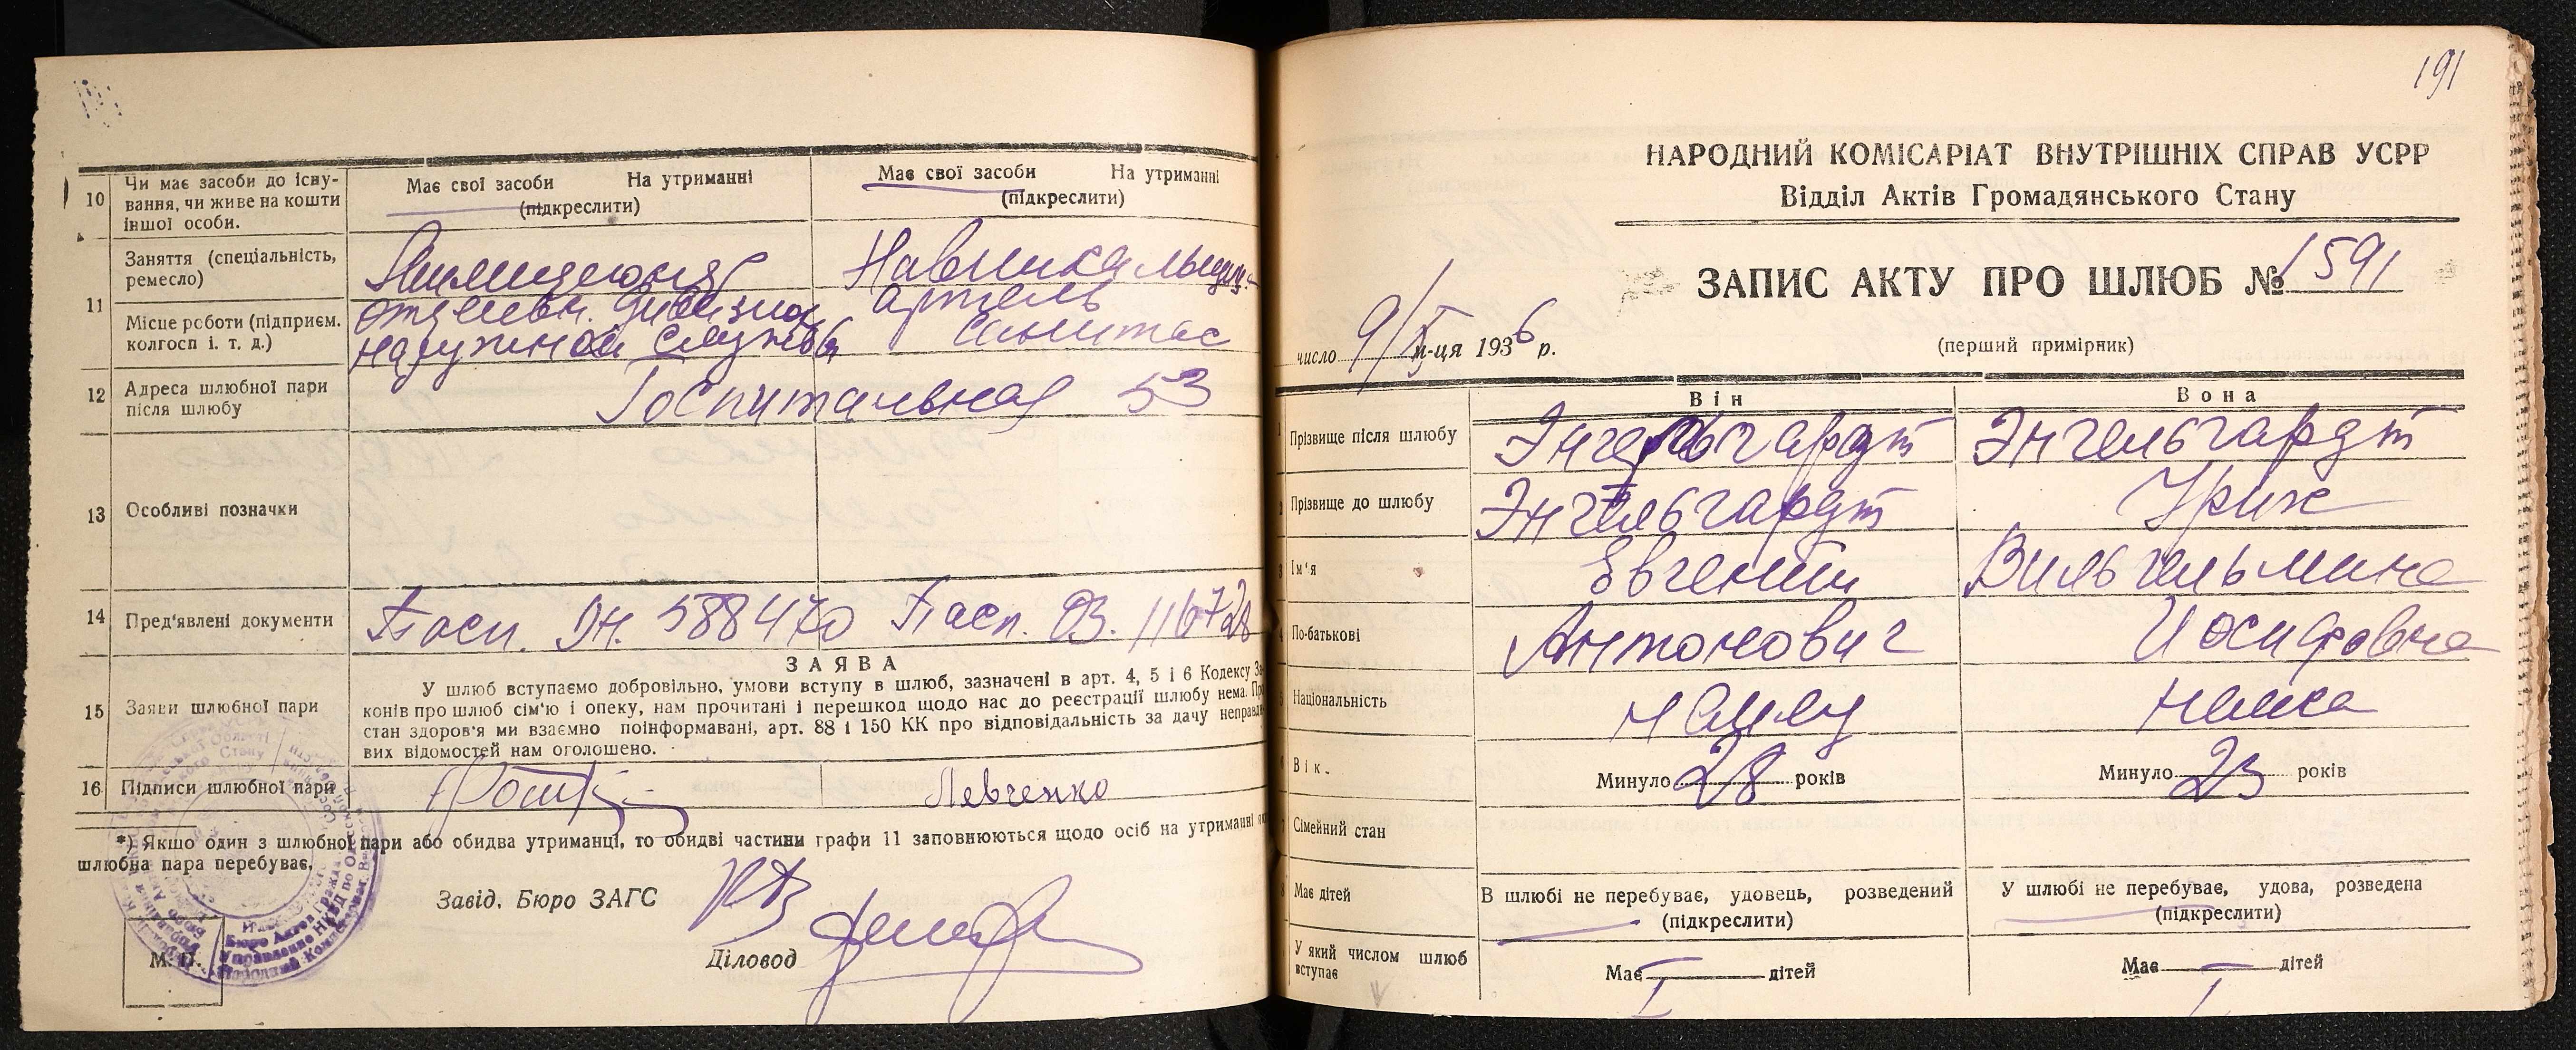 10 Чи має засоби до існу-
вання, чи живе на кошти
іншої особи.
Має свої засоби На утриманні
(підкреслити)
Має свої засоби На утриманні
(підкреслити)
11 Заняття (спеціальність,
ремесло)
Милиционер
Місце роботи (підприєм.
колгосп і. т. д.)
отдельн. дивизион
наружной службы
артель
Санитас
12 Адреса шлюбної пари
після шлюбу
Госпитальная 53
13 Особливі позначки
14 Пред'явлені документи
Пасп. ЭН. 588470 Пасп. ОЗ. 116728
15 Заяви шлюбної пари
ЗАЯВА
У шлюб вступаємо добровільно, умови вступу в шлюб, зазначені в арт. 4, 5 і 6 Кодексу За-
конів про шлюб сім'ю і опеку, нам прочитані і перешкод щодо нас до реєстрації шлюбу нема. Про
стан здоров'я ми взаємно поінформавані, арт. 88 і 150 КК про відповідальність за дачу неправди-
вих відомостей нам оголошено.
16 Підписи шлюбної пари
Левченко
*) Якщо один з шлюбної пари або обидва утриманці, то обидві частини графи 11 заповнюються щодо осіб на утриманні
шлюбна пара перебуває.
Завід. Бюро ЗАГС
Діловод
М. П.
191
НАРОДНИЙ КОМІСАРІАТ ВНУТРІШНІХ СПРАВ УСРР
Відділ Актів Громадянського Стану
ЗАПИС АКТУ ПРО ШЛЮБ № 1591
(перший примірник)
число 9/X м-ця 1936 р.
Він Вона
1 Прізвище після шлюбу Энгельгардт Энгельгардт
2 Прізвище до шлюбу Энгельгардт Урих
3 Ім'я Евгений Вильгельмина
4 По-батькові Антонович Иосифовна
5 Національність немец немка
6 Вік. Минуло 28 років Минуло 23 років
7 Сімейний стан
8 Має дітей
В шлюбі не перебуває, удовець, розведений
(підкреслити)
У шлюбі не перебуває, удова, розведена
(підкреслити)
У який числом шлюб
вступає
Має — дітей Має — дітей
I I